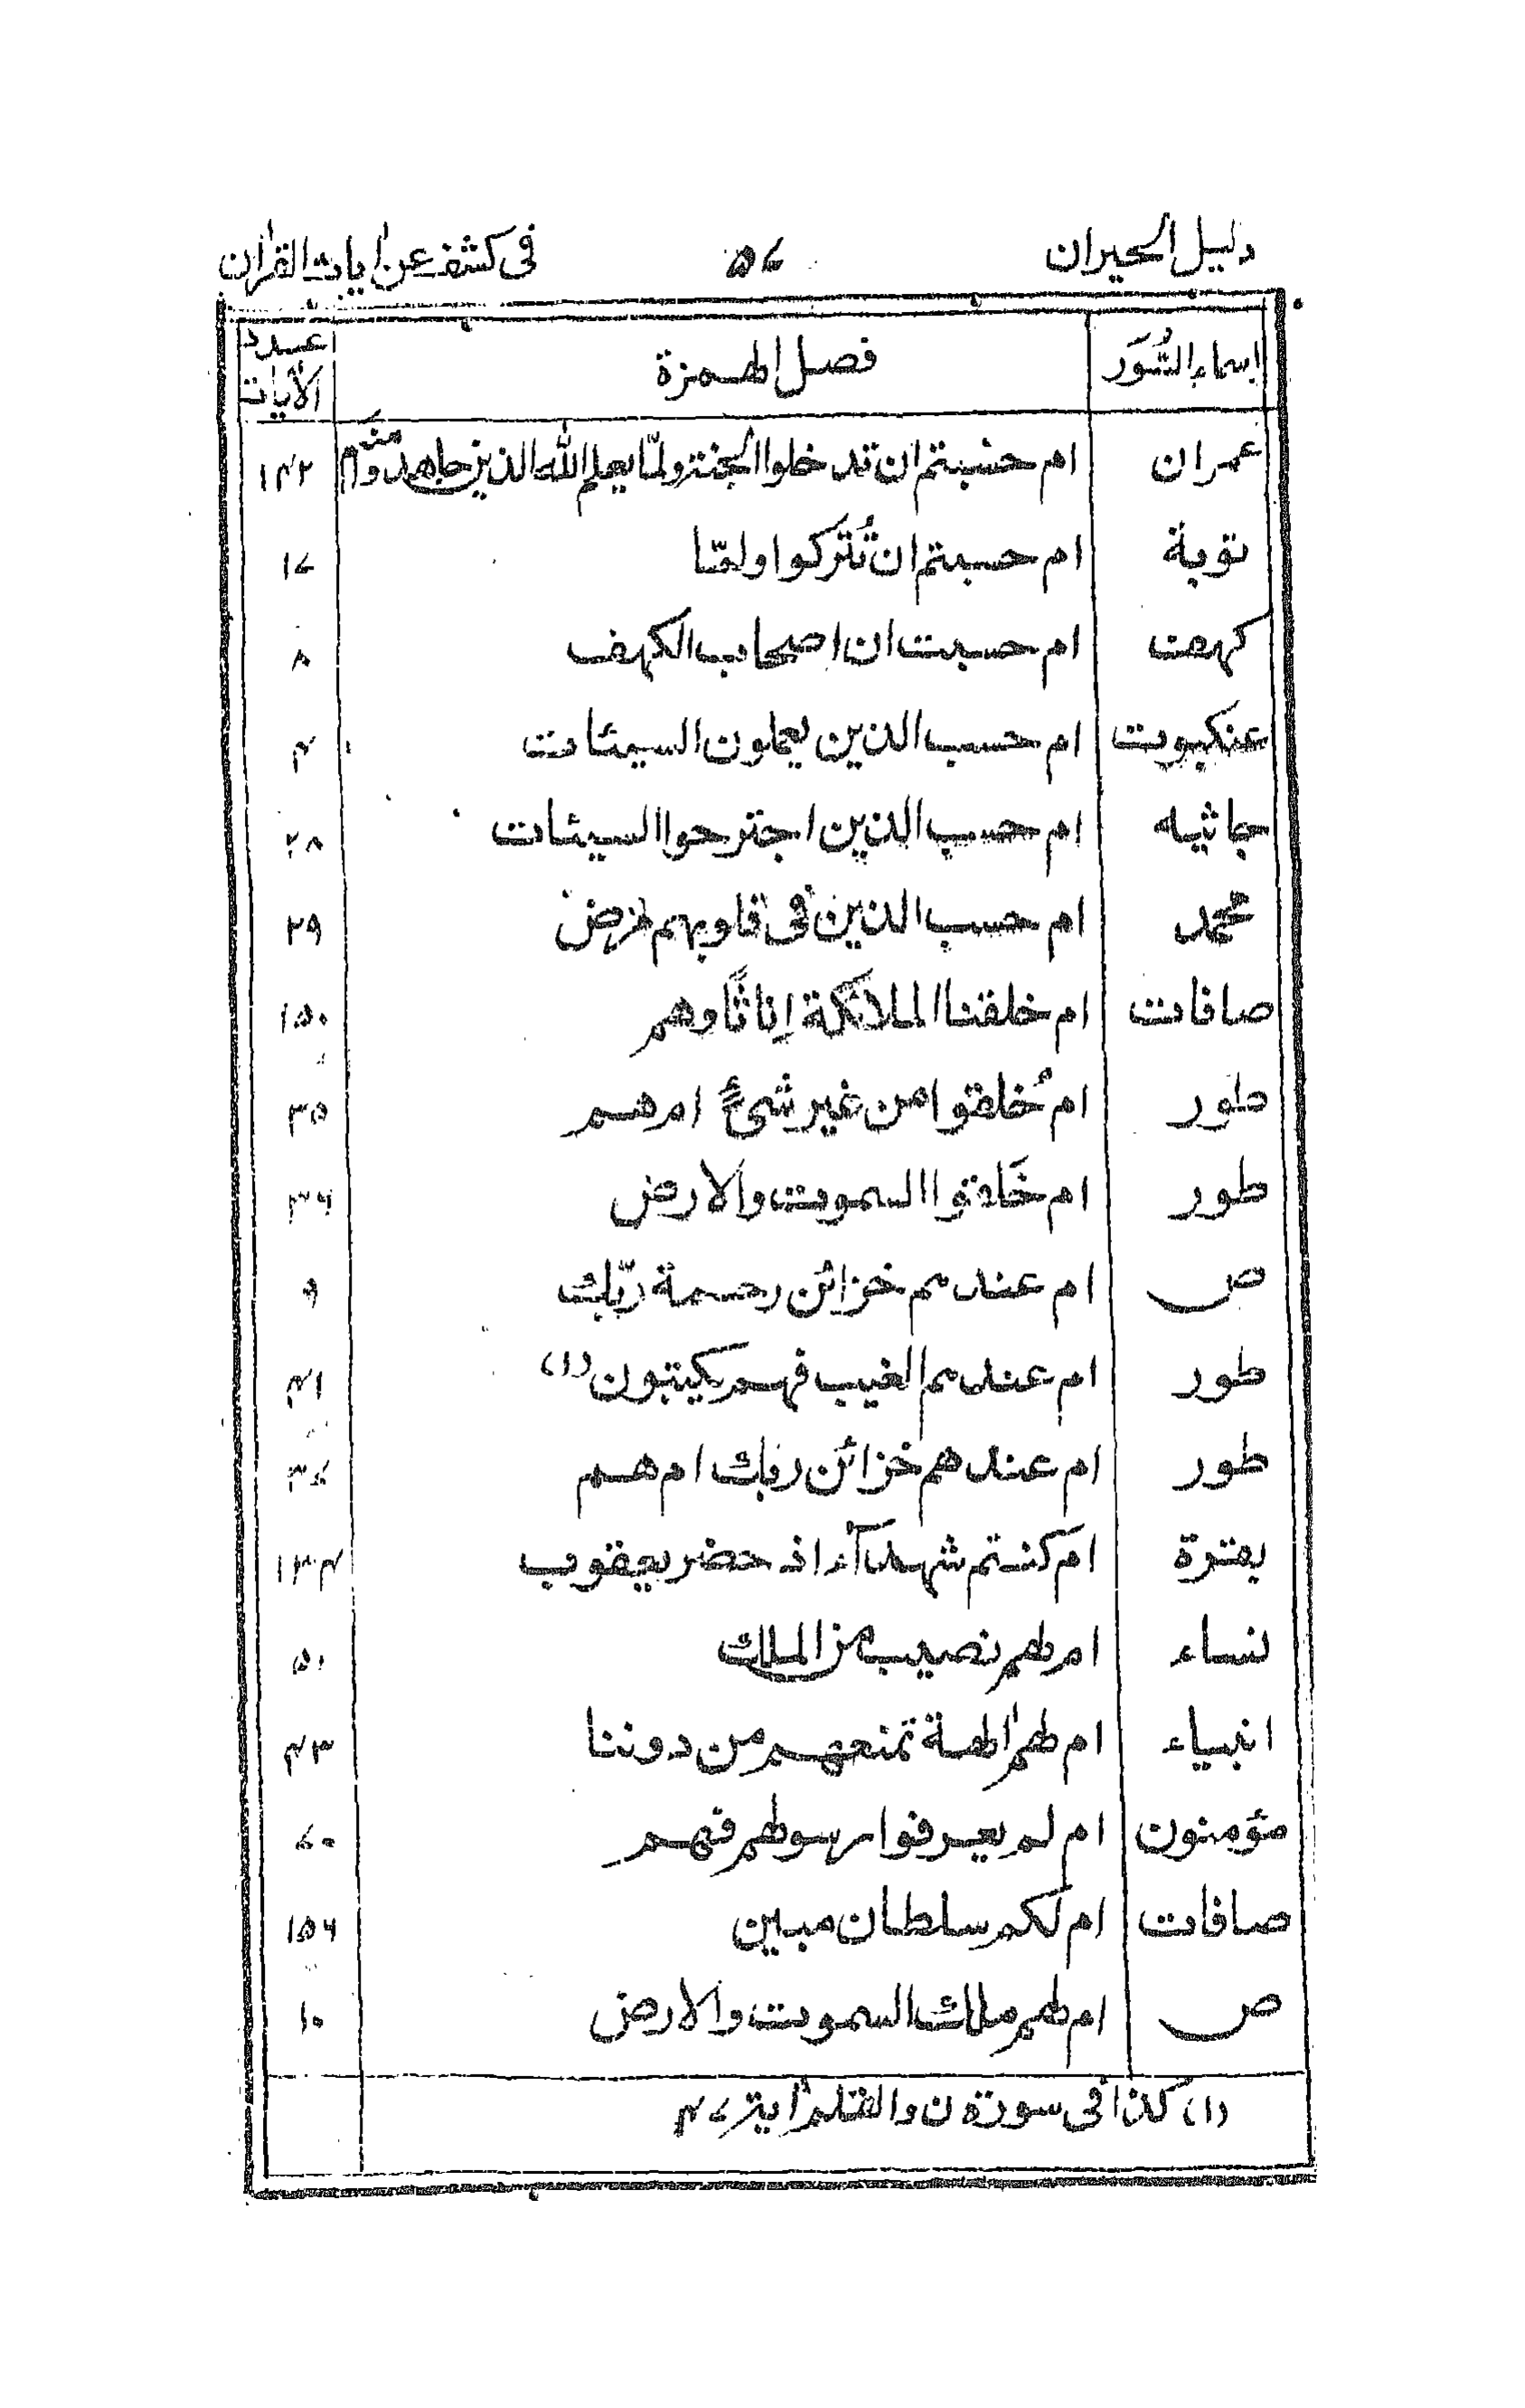 دليل الحيران ۵۷ فى كشف عن اٰيات القراٰن
اسماء السُّوَر فصل الهمزة عدد الآيات
عمران ام حسبتم ان تدخلوا الجنة ولمّا يعلم الله الذين جاهدوا منكم ۱۴۲
توبة ام حسبتم ان تُتْرَكوا ولمّا ۱۷
كهف ام حسبت ان اصحاب الكهف ۸
عنكبوت ام حسب الذين يعملون السيئات ۴
جاثيه ام حسب الذين اجترحوا السيئات ۲۸
محمد ام حسب الذين فى قلوبهم مرض ۲۹
صافات ام خلقنا الملائكة اِناثًا وهم ۱۵۰
طور ام خُلقوا من غير شىءٍ ام هم ۳۵
طور ام خَلقوا السموت والارض ۳۶
ص ام عندهم خزائن رحمة ربّك ۹
طور ام عندهم الغيب فهم يكتبون (۱) ۴۱
طور ام عندهم خزائن ربك ام هم ۳۷
بقرة ام كنتم شهدآء اذ حضر يعقوب ۱۳۴
نساء ام لهم نصيب من الملك ۵۰
انبياء ام لهم اٰلهة تمنعهم من دوننا ۴۳
مؤمنون ام لم يعرفوا رسولهم فهم ۷۰
صافات ام لكم سلطان مبين ۱۵۶
ص ام لهم ملك السموت والارض ۱۰
(۱) كذا فى سورة ن والقلم اٰية ۴۷